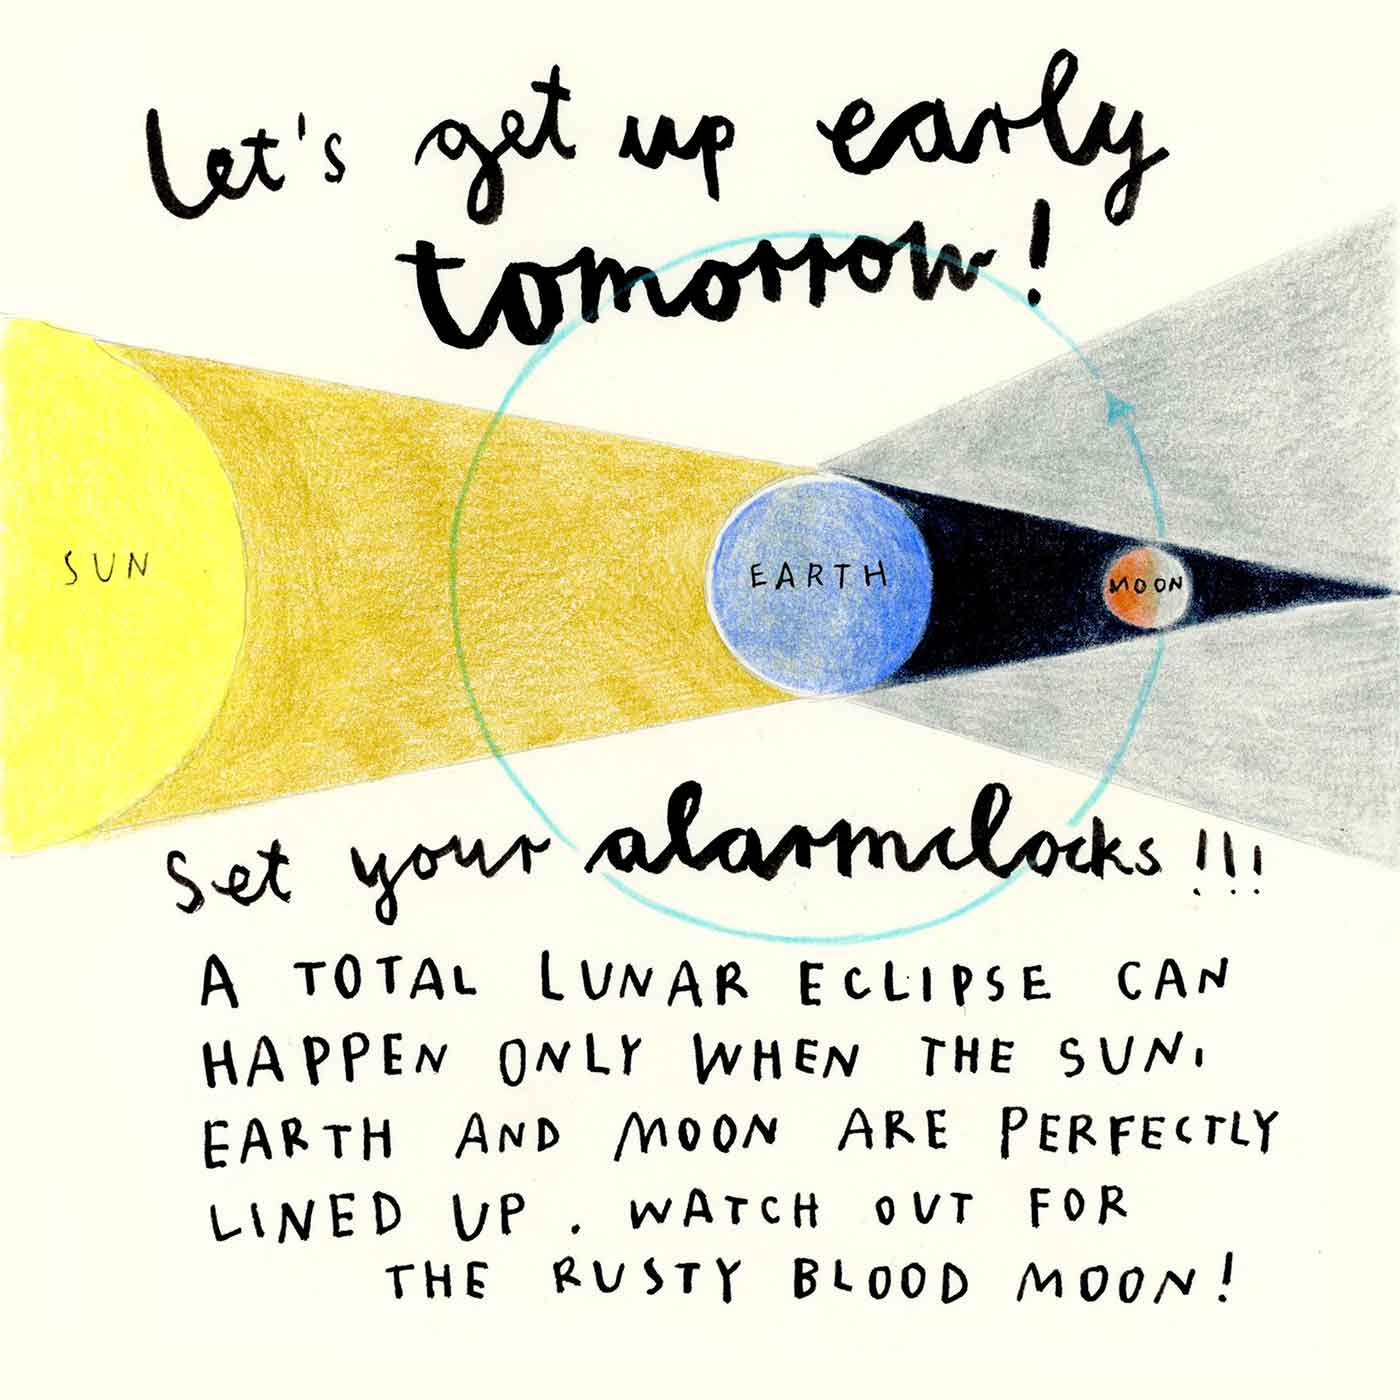 Let's get up early
tomorrow!
SUN
EARTH
MOON
Set your alarmclocks !!!
A TOTAL LUNAR ECLIPSE CAN
HAPPEN ONLY WHEN THE SUN,
EARTH AND MOON ARE PERFECTLY
LINED UP. WATCH OUT FOR
THE RUSTY BLOOD MOON!